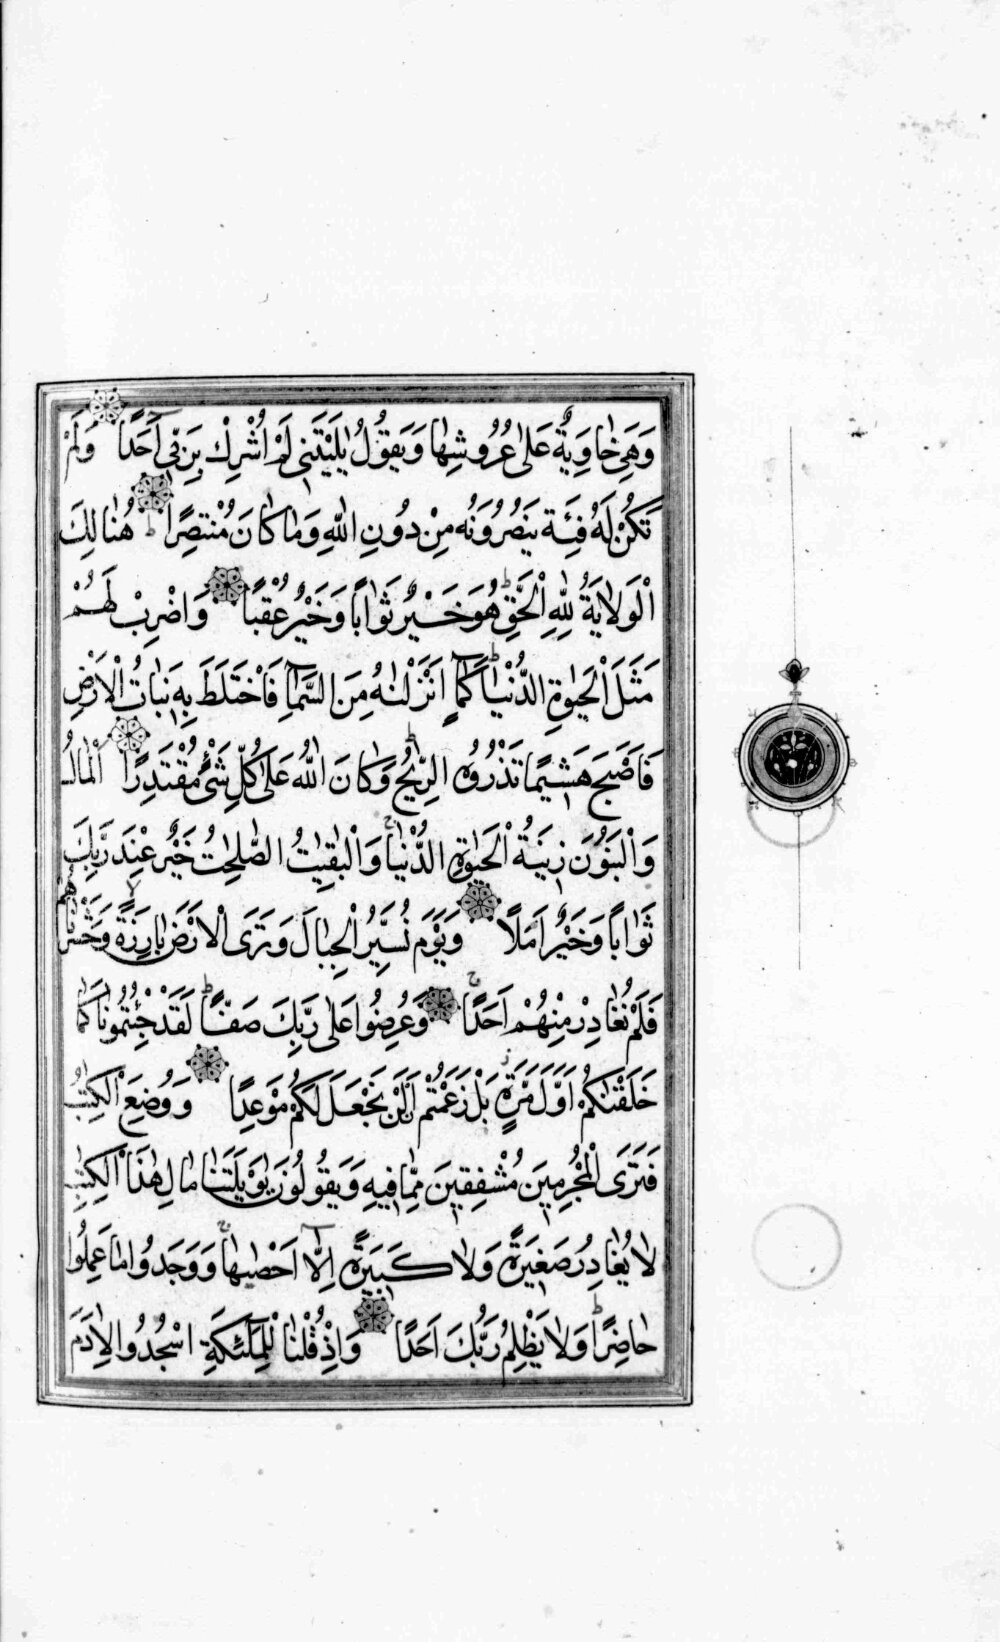 وَهِيَ خَاوِيَةٌ عَلٰى عُرُوشِهَا وَيَقُولُ يٰلَيْتَنِى لَمْ اُشْرِكْ بِرَبِّى اَحَدًا وَلَمْ
تَكُنْ لَهُ فِئَةٌ يَنْصُرُونَهُ مِنْ دُونِ اللهِ وَمَا كَانَ مُنْتَصِرًا هُنَالِكَ
اَلْوَلَايَةُ لِلّٰهِ الْحَقِّ هُوَ خَيْرٌ ثَوَابًا وَخَيْرٌ عُقْبًا وَاضْرِبْ لَهُمْ
مَثَلَ الْحَيٰوةِ الدُّنْيَا كَمَآءٍ اَنْزَلْنٰهُ مِنَ السَّمَآءِ فَاخْتَلَطَ بِهٖ نَبَاتُ الْاَرْضِ
فَاَصْبَحَ هَشِيمًا تَذْرُوهُ الرِّيٰحُ وَكَانَ اللهُ عَلٰى كُلِّ شَىْءٍ مُقْتَدِرًا اَلْمَالُ
وَالْبَنُونَ زِينَةُ الْحَيٰوةِ الدُّنْيَا وَالْبٰقِيٰتُ الصّٰلِحٰتُ خَيْرٌ عِنْدَ رَبِّكَ
ثَوَابًا وَخَيْرٌ اَمَلًا وَيَوْمَ نُسَيِّرُ الْجِبَالَ وَتَرَى الْاَرْضَ بَارِزَةً وَحَشَرْنَاهُمْ
فَلَمْ نُغَادِرْ مِنْهُمْ اَحَدًا وَعُرِضُوا عَلٰى رَبِّكَ صَفًّا لَقَدْ جِئْتُمُونَا كَمَا
خَلَقْنٰكُمْ اَوَّلَ مَرَّةٍ بَلْ زَعَمْتُمْ اَلَّنْ نَجْعَلَ لَكُمْ مَوْعِدًا وَوُضِعَ الْكِتٰبُ
فَتَرَى الْمُجْرِمِينَ مُشْفِقِينَ مِمَّا فِيهِ وَيَقُولُونَ يٰوَيْلَتَنَا مَالِ هٰذَا الْكِتٰبِ
لَا يُغَادِرُ صَغِيرَةً وَلَا كَبِيرَةً اِلَّآ اَحْصٰيهَا وَوَجَدُوا مَا عَمِلُوا
حَاضِرًا وَلَا يَظْلِمُ رَبُّكَ اَحَدًا وَاِذْ قُلْنَا لِلْمَلٰٓئِكَةِ اسْجُدُوا لِاٰدَمَ